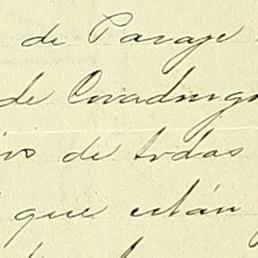 de Pasage
de Covadonga
de todas
que están